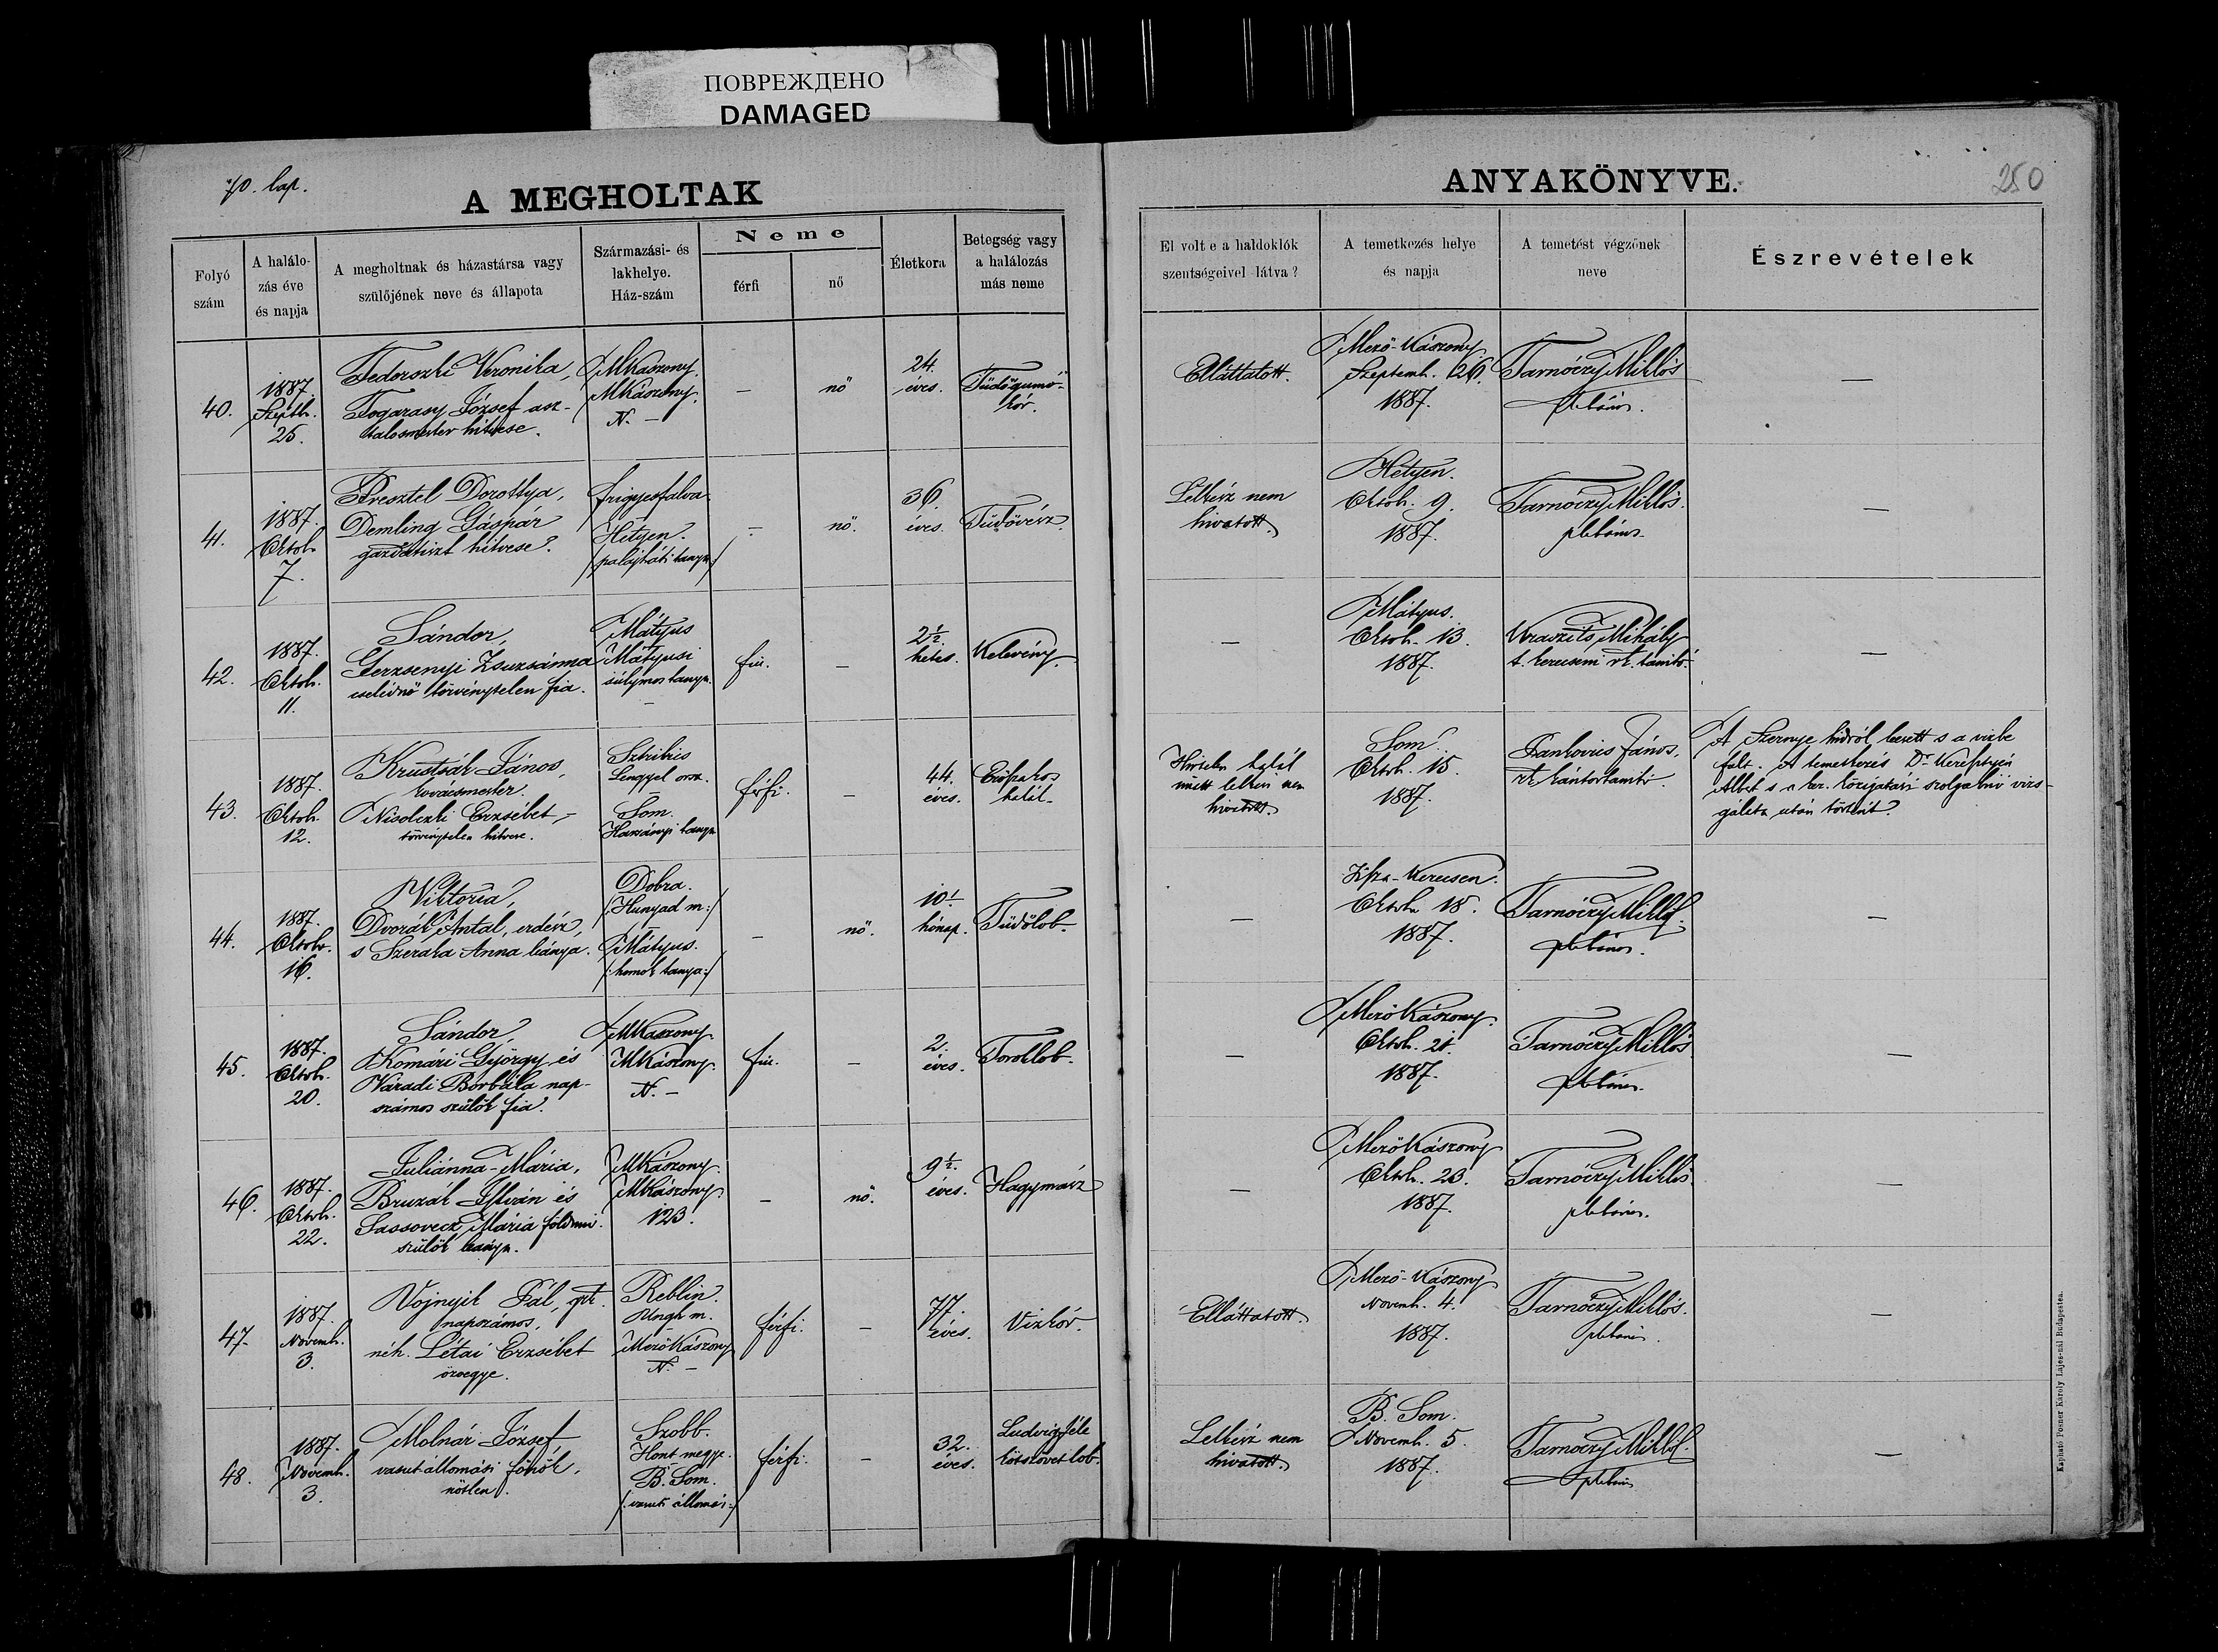 ПОВРЕЖДЕНО
DAMAGED
70. lap.
A MEGHOLTAK
ANYAKÖNYVE.
250
Folyó szám
A halálo-
zás éve
és napja
A megholtnak és házastársa vagy
szülőjének neve és állapota
Származási- és
lakhelye.
Ház-szám
Neme
férfi
nő
Életkora
Betegség vagy
a halálozás
más neme
El volt e a haldoklók
szentségeivel látva?
A temetkezés helye
és napja
A temetést végzőnek
neve
Észrevételek
40.
1887.
Septb.
25.
Fedorszki Veronika,
Fogarasy József asz-
talosmester hitvese.
MKászony.
MKászony.
N. –
–
nő
24.
éves.
Tüdőgumó-
kór.
Elláttatott.
Mező-Kászony
Septemb. 26.
1887.
Tarnóczy Miklós
plebános.
—
41.
1887.
Oktob.
7.
Presztel Dorottya,
Demling Gáspár
gazdatiszt hitvese.
Frigyesfalva
Hetyen.
(palájháti tanya)
–
nő.
36.
éves.
Tüdővész.
Lelkész nem
hivatott.
Hetyen.
Oktob. 9.
1887.
Tarnóczy Miklós.
plebános.
—
42.
1887.
Oktob.
11.
Sándor,
Gerzsenyi Zsuzsánna
cselédnő törvénytelen fia.
Mátyus
Mátyusi
súlymos tanya.
–
fiu.
–
2½
hetes.
Kelevény.
—
Mátyus.
Oktob. 13.
1887.
Mihály
t. kerecseni rk. tanító.
—
43.
1887.
Oktob.
12.
Krustsák János,
kovácsmester.
Nisolczki Erzsébet, –
törvénytelen hitvese.
Lengyel orsz.
–
Som.
Harsányi tanya
férfi.
–
44.
éves.
Erőszakos
halál.
Hirtelen halál
miatt lelkész nem
hivatott.
Som.
Oktob. 15.
1887.
Pankovics János.
rk. kántortanitó.
A Szernye hidról leesett s a vizbe
fult. A temetkezés Dr.
Albert s a ker. közigatási szolgabiró vizs-
gálata után történt.
44.
1887.
Oktob.
16.
Viktoria,
Dvorák Antal, erdész,
s Szeraka Anna leánya.
Dobra.
(:Hunyad m:)
–
Mátyus.
(:homok tanya:)
–
nő.
10½
hónap.
Tüdőlob.
—
Tisza-Kerecsen.
Oktob. 18.
1887.
Tarnóczy Miklós.
plebános.
—
45.
1887.
Oktob.
20.
Sándor,
Komári György és
Váradi Borbála nap-
számos szülők fia.
MKászony.
MKászony.
N. –
fiu.
–
2.
éves.
Toroklob.
—
MezőKászony.
Oktob. 21.
1887.
Tarnóczy Miklós
plebános.
—
46.
1887.
Oktob.
22.
Juliánna-Mária,
Bruzák István és
Sassovecz Mária földmi.
szülők leánya.
MKászony.
MKászony.
123.
–
nő.
9½.
éves.
Hagymász
—
MezőKászony
Oktob. 23.
1887.
Tarnóczy Miklós.
plebános.
—
47.
1887.
Novemb.
3.
Vojnyik Pál,
napszámos,
néh. Létai Erzsébet
özvegye.
Reblin.
Ungh m.
–
MezőKászony
N. –
férfi.
–
77.
éves.
Vizkór.
Elláttatott.
Mező-Kászony
Novemb. 4.
1887.
Tarnóczy Miklós.
plebános.
—
48.
1887.
Novemb.
3.
Molnár József
vasutállomási főnök,
nőtlen.
Szobb.
Hont megye.
B. Som.
(:vasuti állomás:)
férfi.
–
32.
éves.
Ludvigféle
kötszövetlob.
Lelkész nem
hivatott.
B. Som.
Novemb. 5.
1887.
Tarnóczy Miklós.
plebános
—
Kapható Posner Károly Lajos-nál Budapesten.